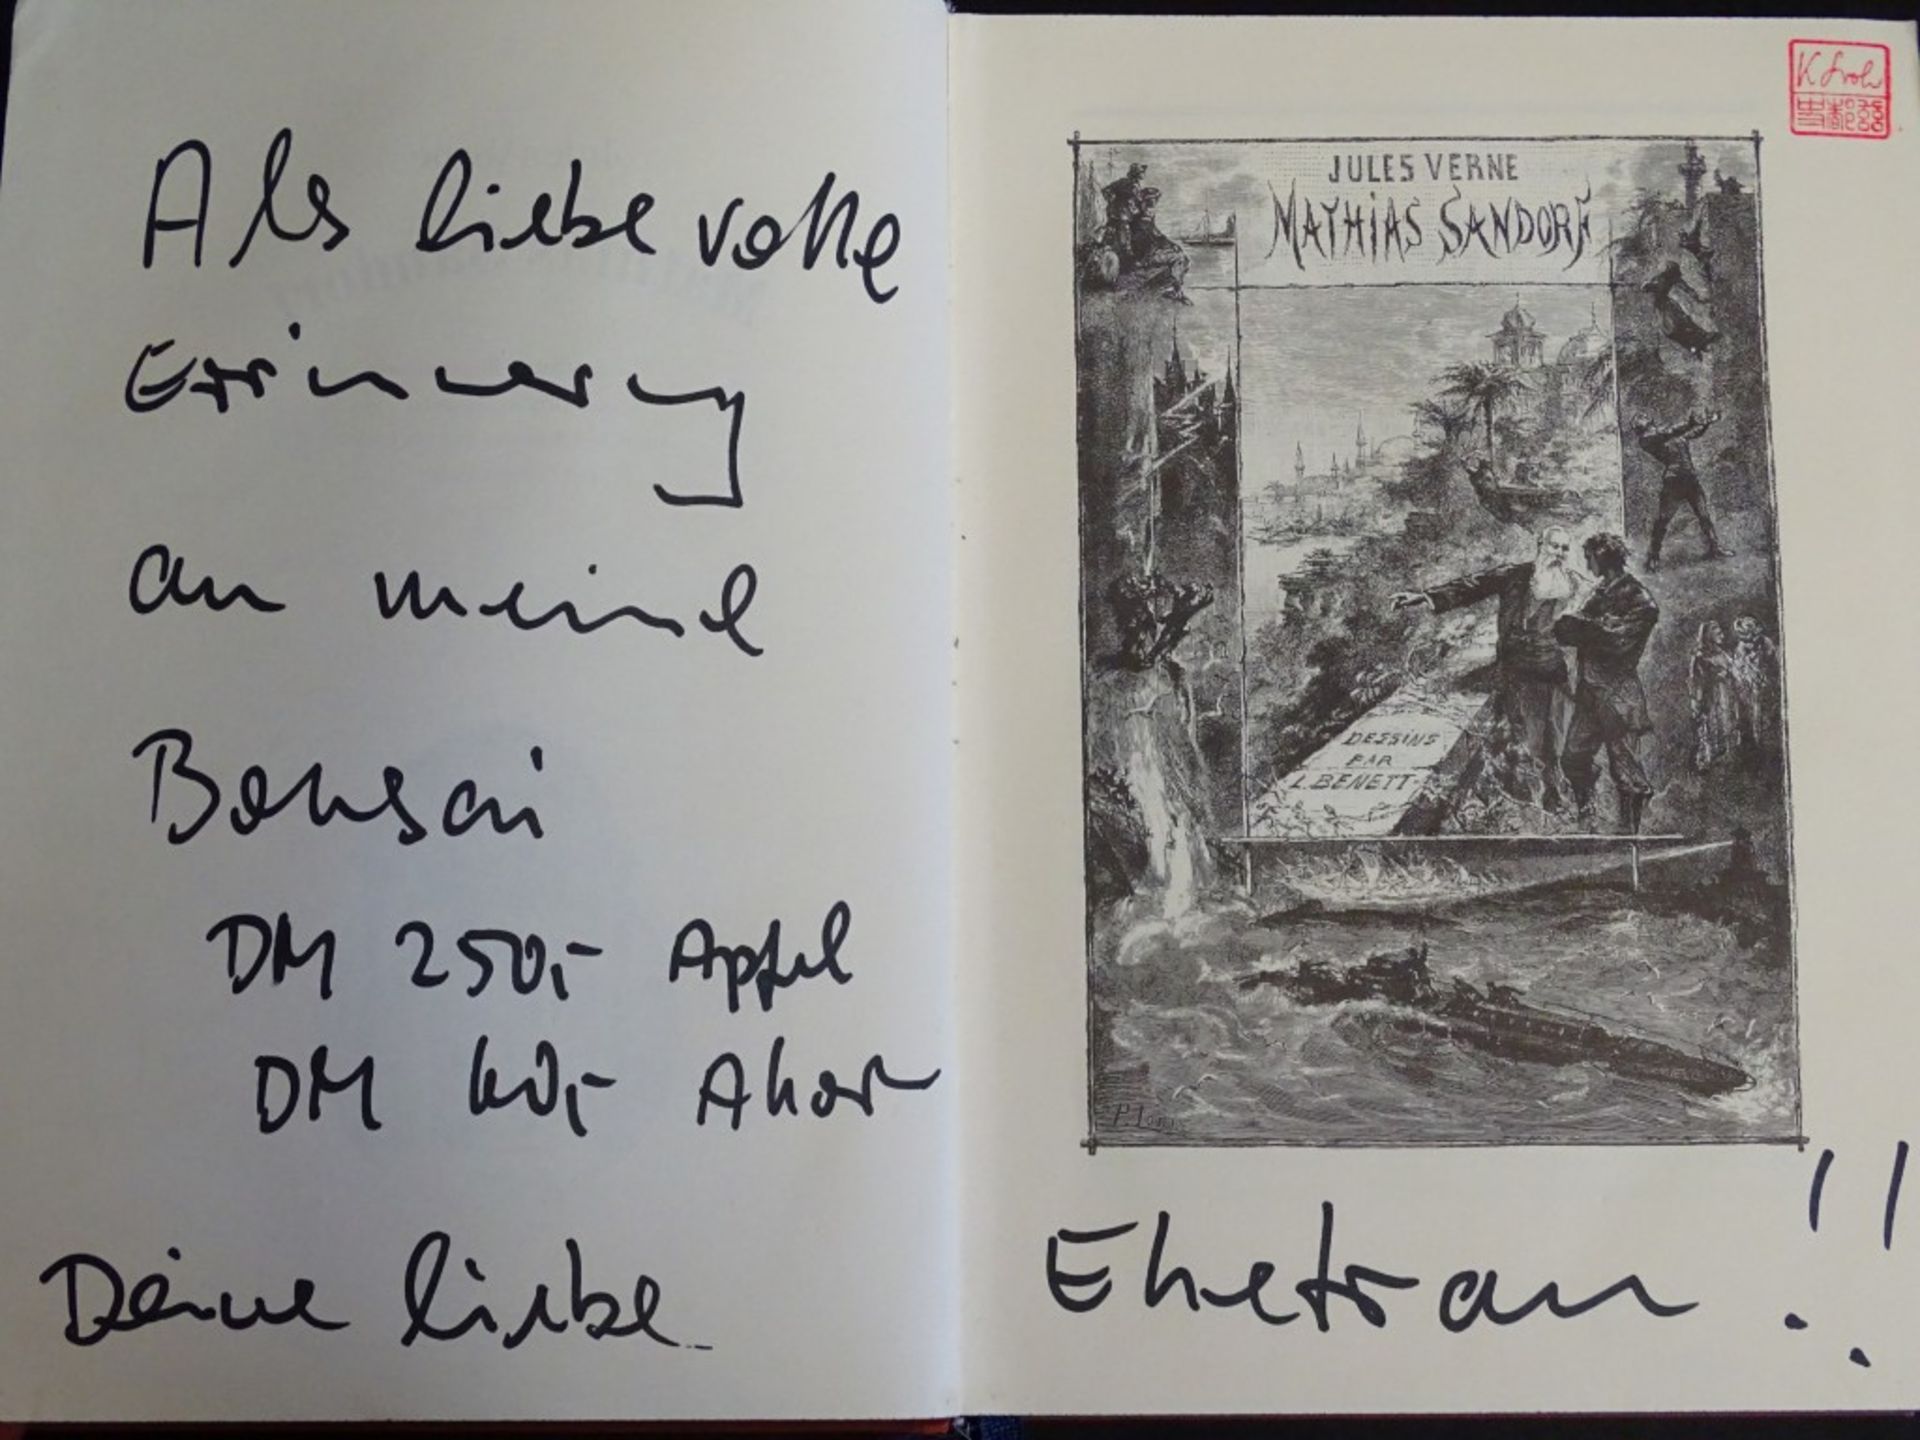 Als liebevolle
Erinnerung
an meine
Bonsai
DM 250,- Apfel
DM 60,- Ahorn
Deine liebe
JULES VERNE
MATHIAS SANDORF
DESSINS
PAR
L. BENETT
Ehefrau!!